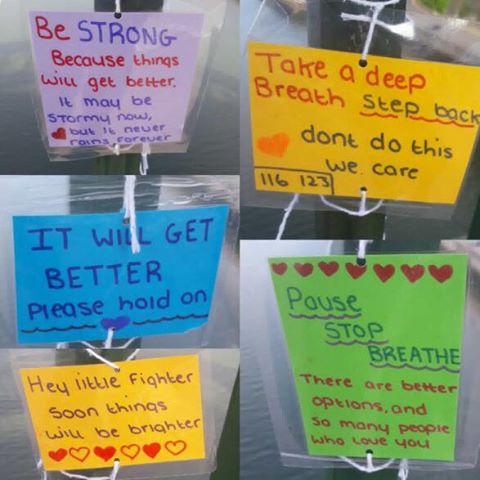 Be STRONG
Because things
will get better.
It may be
stormy now,
but it never
rains forever
Take a deep
Breath step back
dont do this
we care
116 123
IT WILL GET
BETTER
Please hold on
Hey little Fighter
soon things
will be brighter
Pause
STOP
BREATHE
There are better
options, and
so many people
who love you